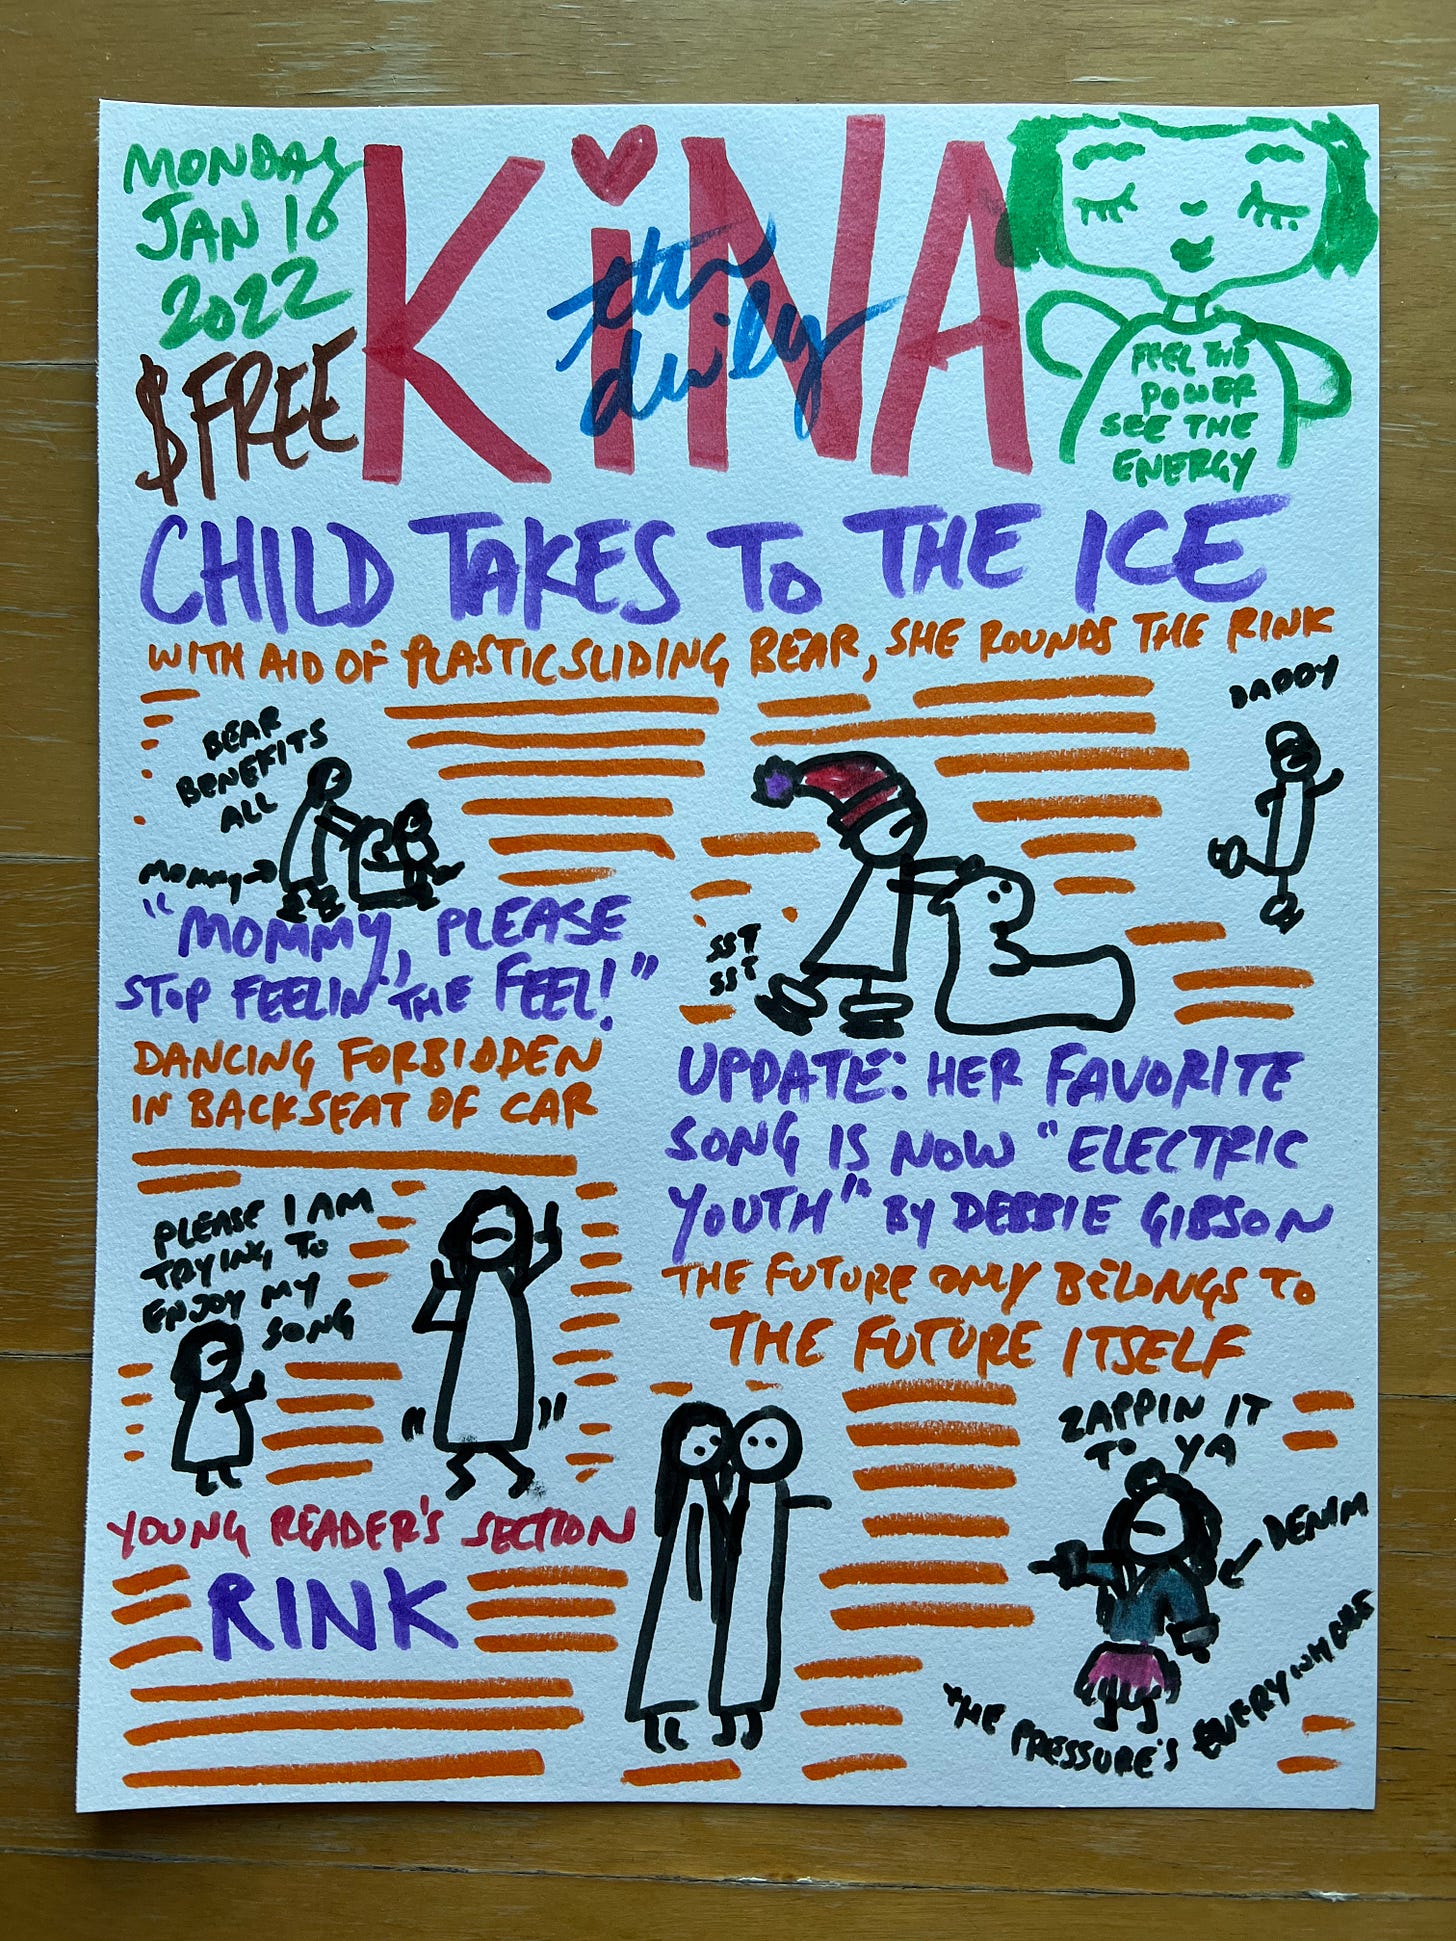 MONDAY
JAN 16
2022
$FREE
KiNA
the
daily
FEEL THE
POWER
SEE THE
ENERGY
CHILD TAKES TO THE ICE
WITH AID OF PLASTIC SLIDING BEAR, SHE ROUNDS THE RINK
BEAR
BENEFITS
ALL
MOMMY→
DADDY
SST
SST
"MOMMY, PLEASE
STOP FEELIN' THE FEEL!"
DANCING FORBIDDEN
IN BACKSEAT OF CAR
PLEASE I AM
TRYING TO
ENJOY MY
SONG
YOUNG READER'S SECTION
RINK
UPDATE: HER FAVORITE
SONG IS NOW "ELECTRIC
YOUTH" BY DEBBIE GIBSON
THE FUTURE ONLY BELONGS TO
THE FUTURE ITSELF
ZAPPIN IT
TO YA
DENIM
THE PRESSURE'S EVERYWHERE